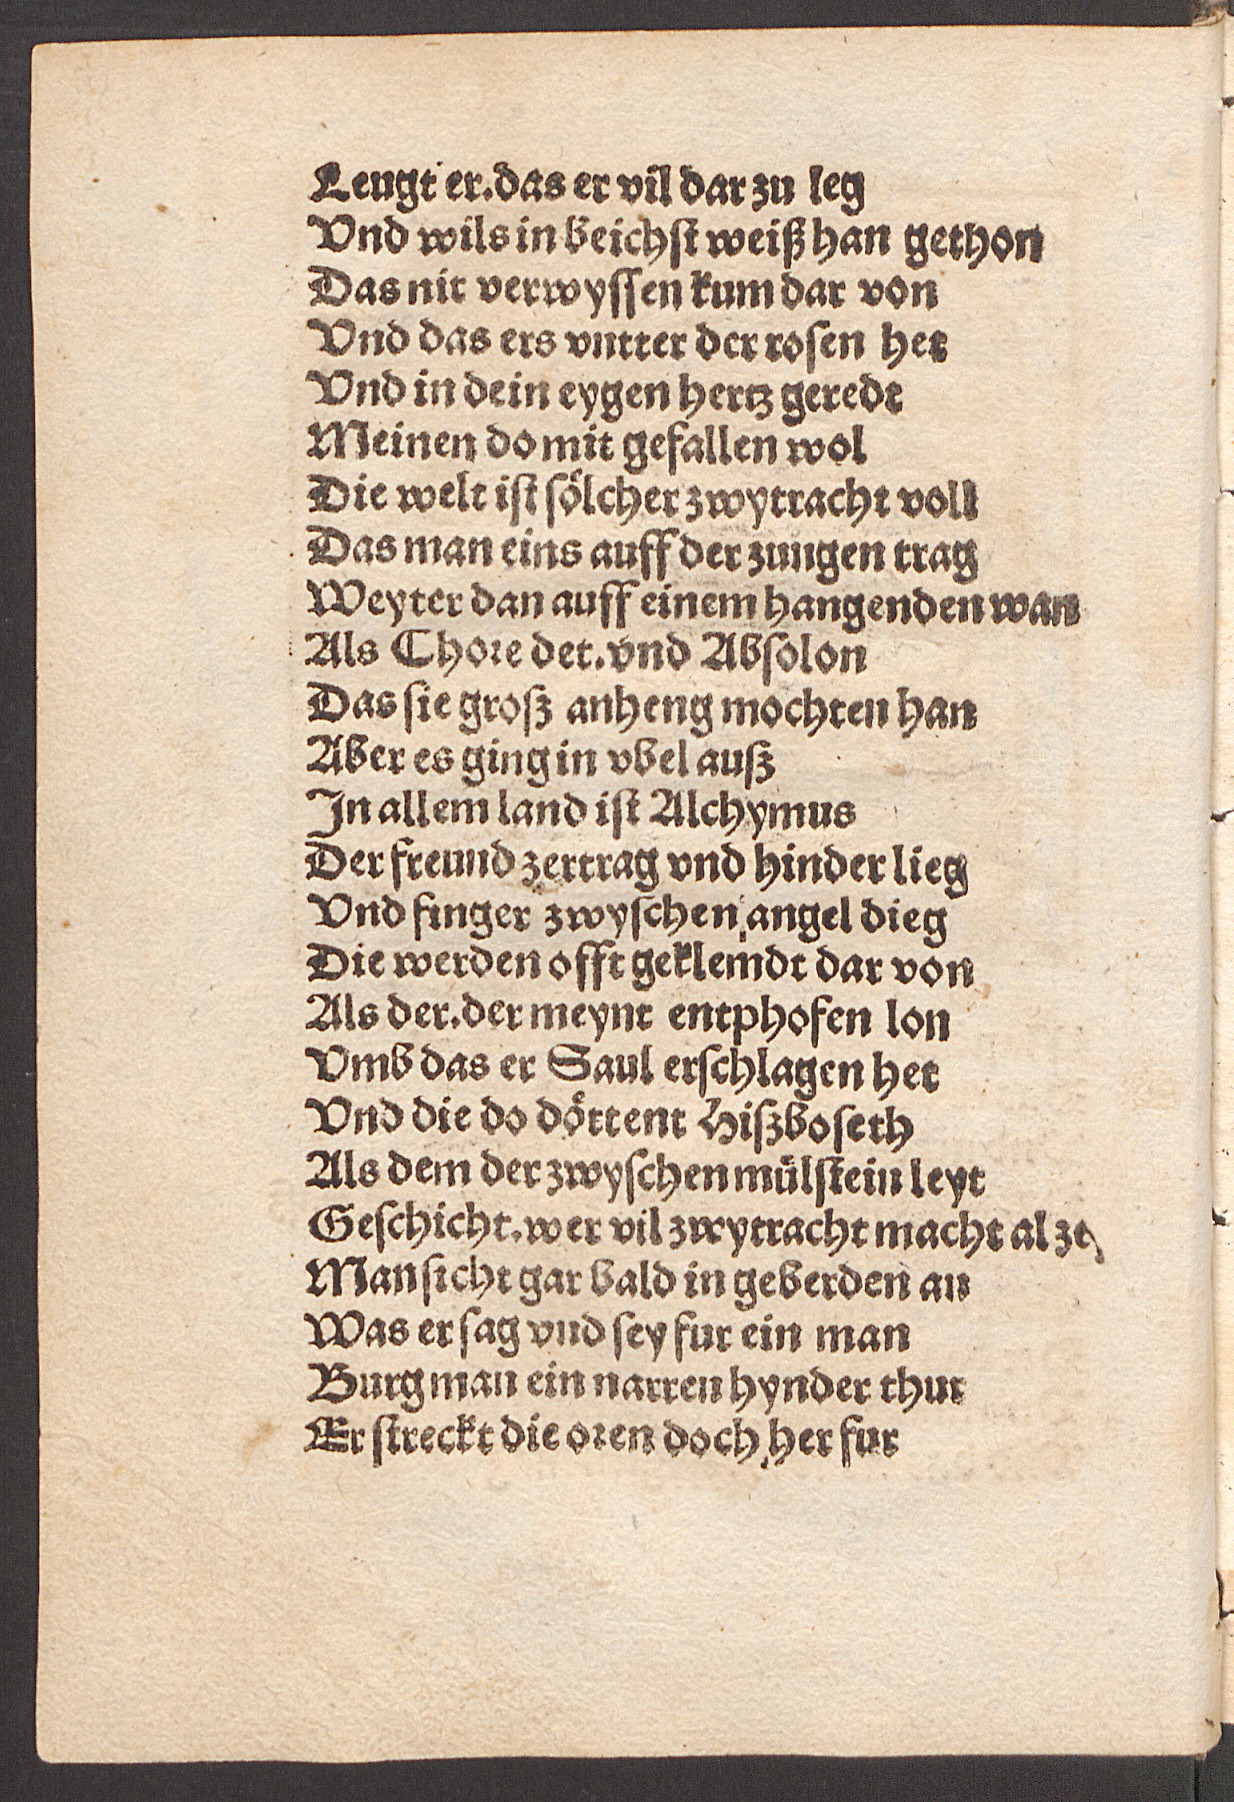 Leugt er.das er vil dar zu leg
Vnd wils in beichſt weiß han gethon
Das nit verwyſſen kum dar von
Vnd das ers vntter der roſen het
Vnd in dein eygen hertz geredt
Meinen do mit gefallen wol
Die welt iſt ſölcher zwytracht voll
Das man eins auff der zungen trag
Weyter dan auff einem hangenden wan
Als Chore det.vnd Abſolon
Das ſie groß anheng mochten han
Aber es ging in vbel auß
In allem land iſt Alchymus
Der freund zertrag vnd hinder lieg
Vnd finger zwyſchen angel dieg
Die werden offt geklemdt dar von
Als der.der meynt entphofen lon
Vmb das er Saul erſchlagen het
Vnd die do döttent Hißboſeth
Als dem der zwyſchen mülſtein leyt
Geſchicht.wer vil zwytracht macht al
Man ſicht gar bald in geberden an
Was er ſag vnd ſey fur ein man
Burg man ein narren hynder thur
Er ſtreckt die oren doch her fur